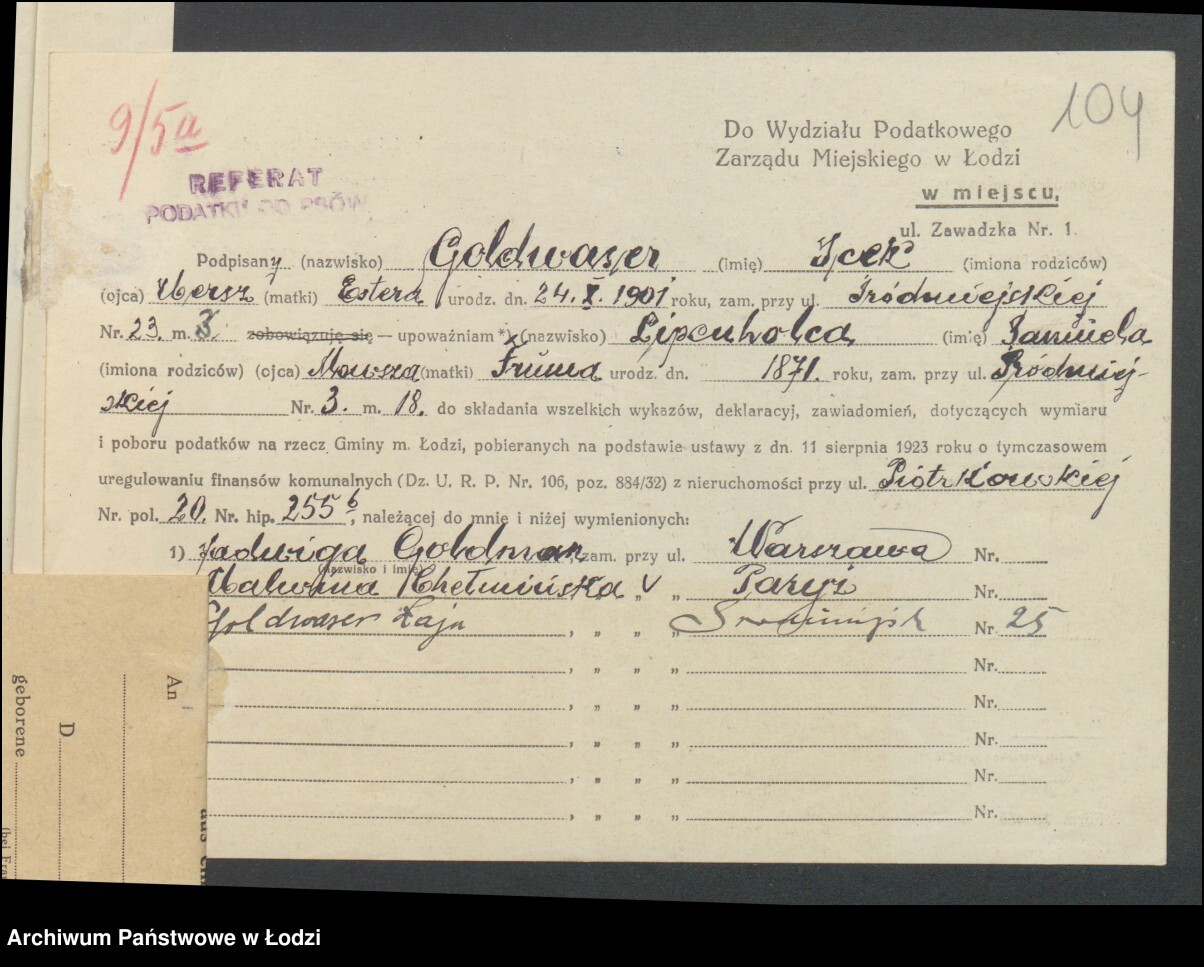 9/5a
104
REFERAT
PODATKU OD PSÓW
Do Wydziału Podatkowego
Zarządu Miejskiego w Łodzi
w miejscu,
ul. Zawadzka Nr. 1.
Podpisany (nazwisko) Goldwaser (imię) Icek (imiona rodziców)
(ojca) Hersz (matki) Estera urodz. dn. 24. X. 1901 roku, zam. przy ul. Śródmiejskiej
Nr. 23. m. 3 zobowiązuję się — upoważniam *) (nazwisko) Lipenholca (imię) Samuela
(imiona rodziców) (ojca) Mowsza (matki) Fruma urodz. dn. 1871. roku, zam. przy ul. Śródmiej-
skiej Nr. 3. m. 18. do składania wszelkich wykazów, deklaracyj, zawiadomień, dotyczących wymiaru
i poboru podatków na rzecz Gminy m. Łodzi, pobieranych na podstawie ustawy z dn. 11 sierpnia 1923 roku o tymczasowem
uregulowaniu finansów komunalnych (Dz. U. R. P. Nr. 106, poz. 884/32) z nieruchomości przy ul. Piotrkowskiej
Nr. pol. 20. Nr. hip. 255 b, należącej do mnie i niżej wymienionych:
1) Jadwiga Goldman, zam. przy ul. Warszawa Nr.
(nazwisko i imię)
Malwina Chełmińska „ „ Paryż Nr.
Goldwaser Łaja , „ „ „ Nr. 25
, „ „ „ Nr.
, „ „ „ Nr.
, „ „ „ Nr.
, „ „ „ Nr.
, „ „ „ Nr.
An
D
geborene
(bei Frau
aus
Archiwum Państwowe w Łodzi